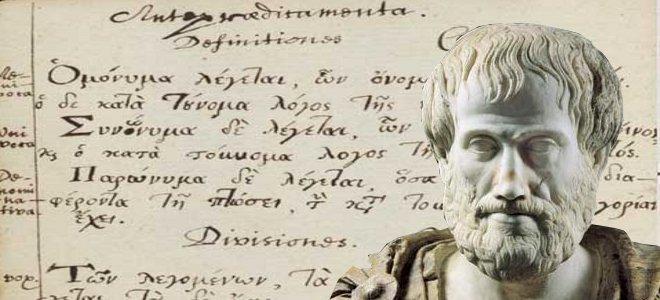 Antepraedicamenta.
Definitiones
Ὁμώνυμα λέγεται, ὧν ὄνομ
voca ὁ δὲ κατὰ τοὔνομα λόγος τῆς
Uni Συνώνυμα δὲ λέγεται, ὧν
voca ὁ κατὰ τοὔνομα λόγος τῆ
De- Παρώνυμα δὲ λέγεται, ὅσα δια-
nomi
na φέροντα τῇ πτώσει,
tiva. ἔχει.
Divisiones.
vox. Τῶν λεγομένων, τὰ